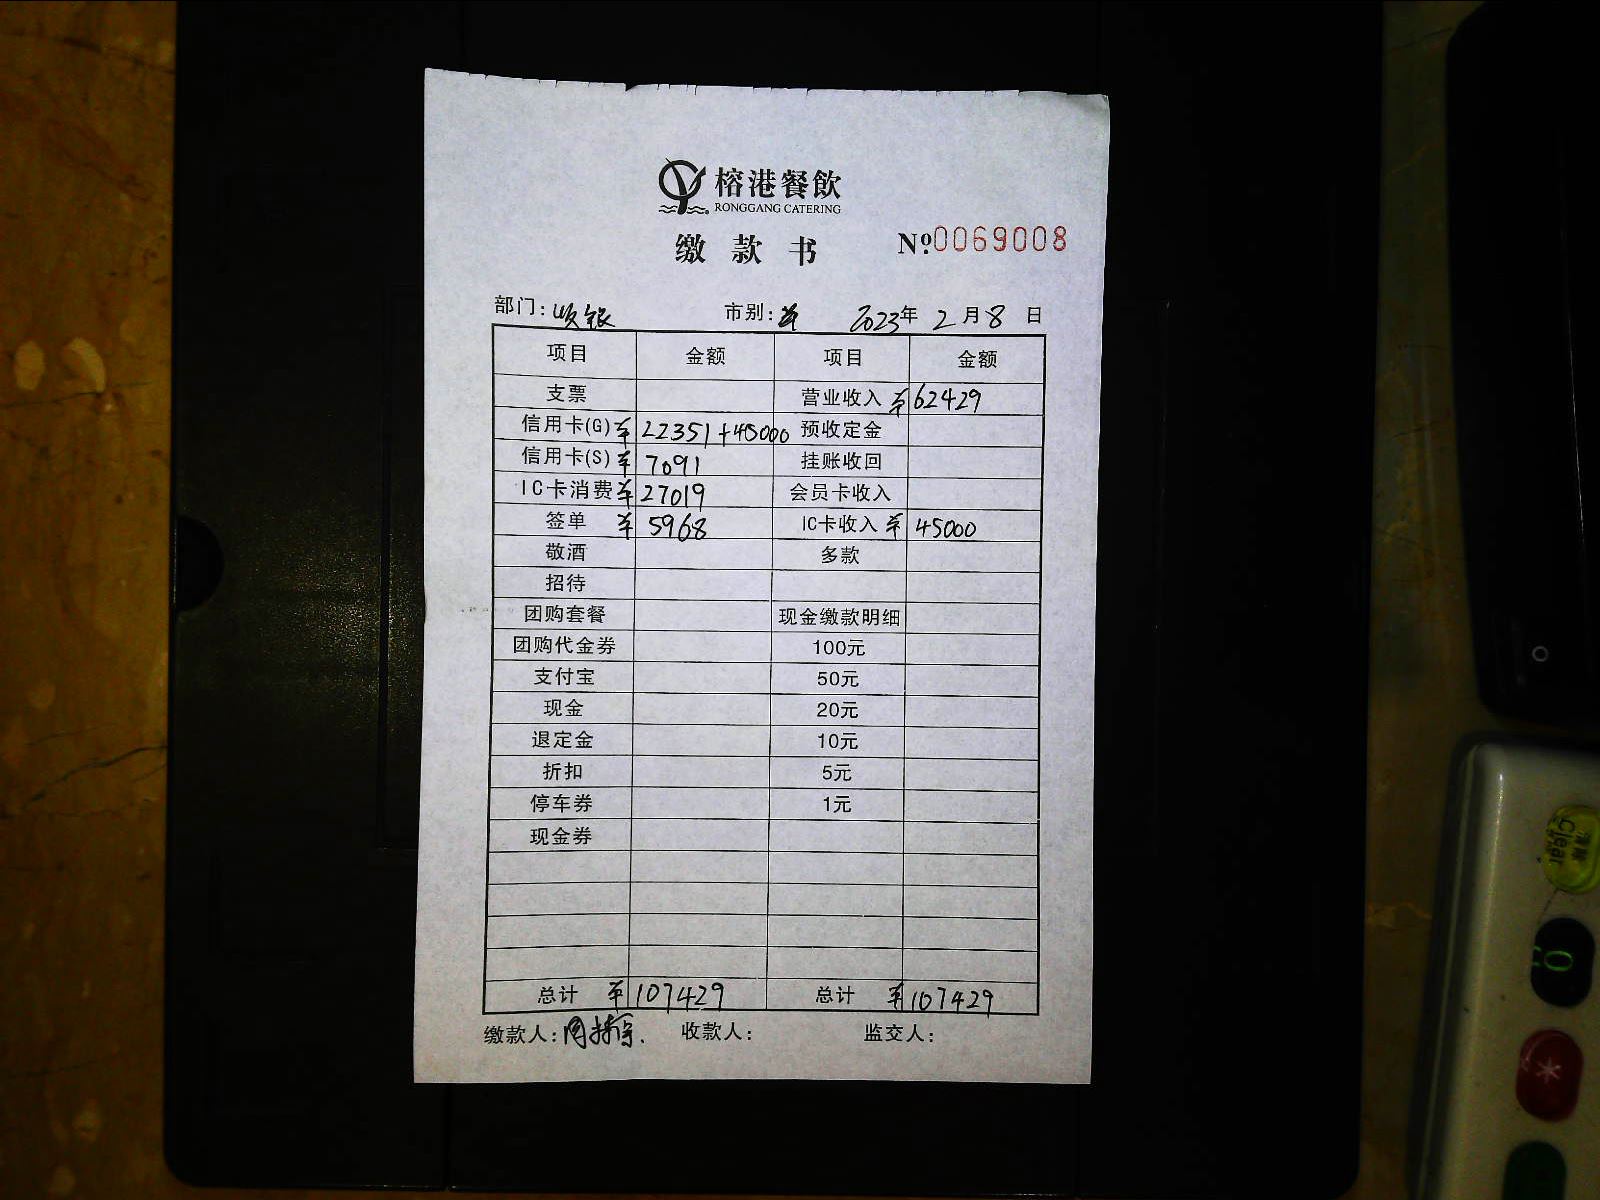 榕港餐飲
RONGGANG CATERING
缴款书 Nº.0069008
部门: 收银 市别: 2023年2月8日
项目 金额 项目 金额
支票 营业收入 ¥62429
信用卡(G) ¥22351+45000 预收定金
信用卡(S) ¥7091 挂账收回
IC卡消费 ¥27019 会员卡收入
签单 ¥5968 IC卡收入 ¥45000
敬酒 多款
招待
团购套餐 现金缴款明细
团购代金券 100元
支付宝 50元
现金 20元
退定金 10元
折扣 5元
停车券 1元
现金券
总计 ¥107429 总计 ¥107429
缴款人: 收款人: 监交人:
清除
Clear
0
*